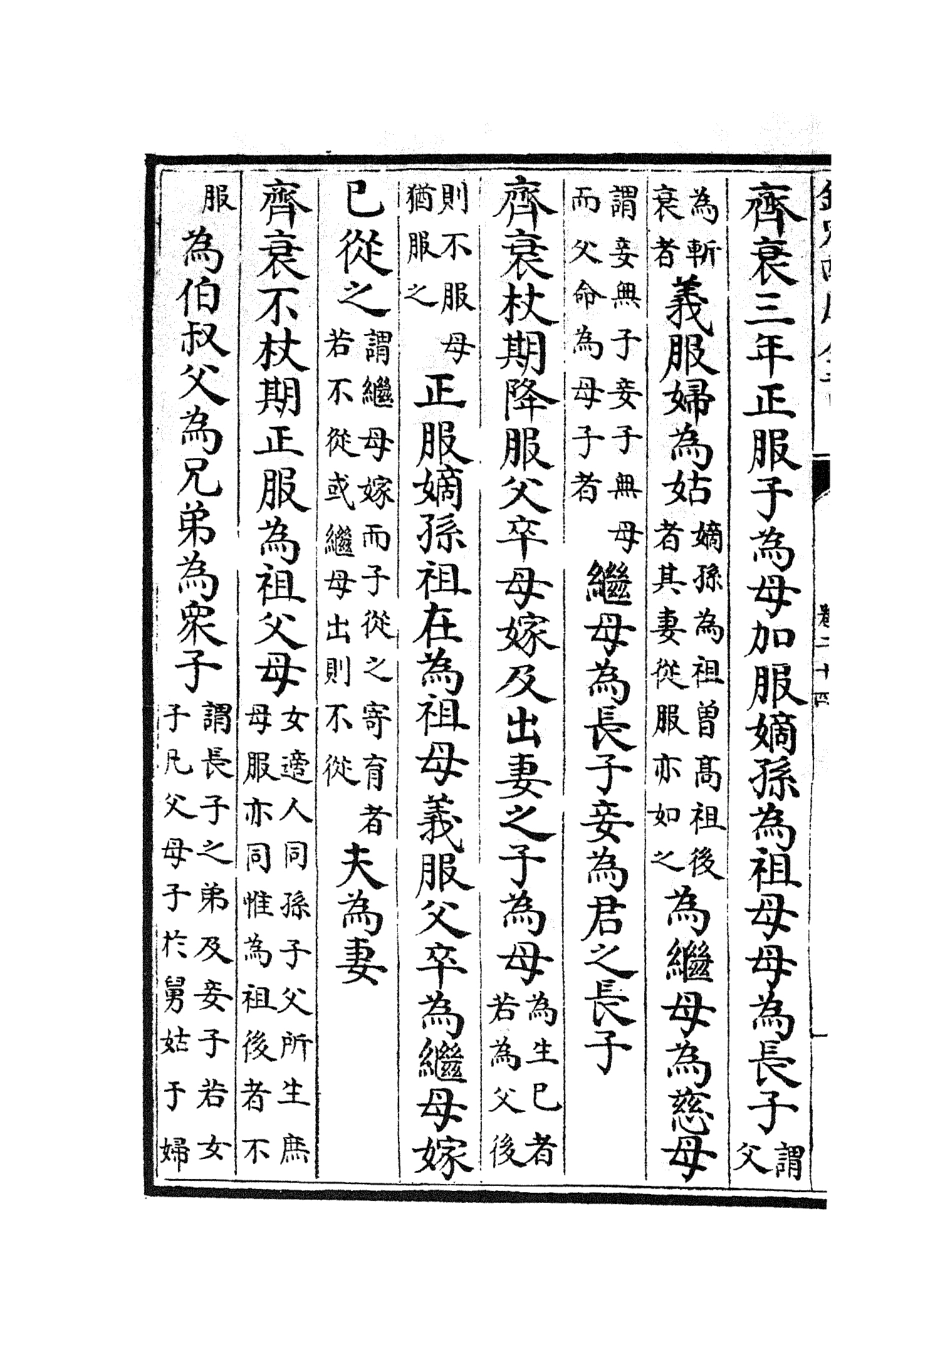 卷二十四
齊衰三年正服子為母加服嫡孫為祖母母為長子謂父
為斬衰者義服婦為姑嫡孫為祖曾髙祖後者其妻從服亦如之為繼母為慈母
謂妾無子妾子無母而父命為母子者繼母為長子妾為君之長子
齊衰杖期降服父卒母嫁及出妻之子為母為生已者若為父後
則不服母猶服之正服嫡孫祖在為祖母義服父卒為繼母嫁
已從之謂繼母嫁而子從之寄育者若不從或繼母出則不從夫為妻
齊衰不杖期正服為祖父母女適人同孫子父所生庶母服亦同惟為祖後者不
服為伯叔父為兄弟為衆子謂長子之弟及妾子若女子凡父母子於舅姑于婦